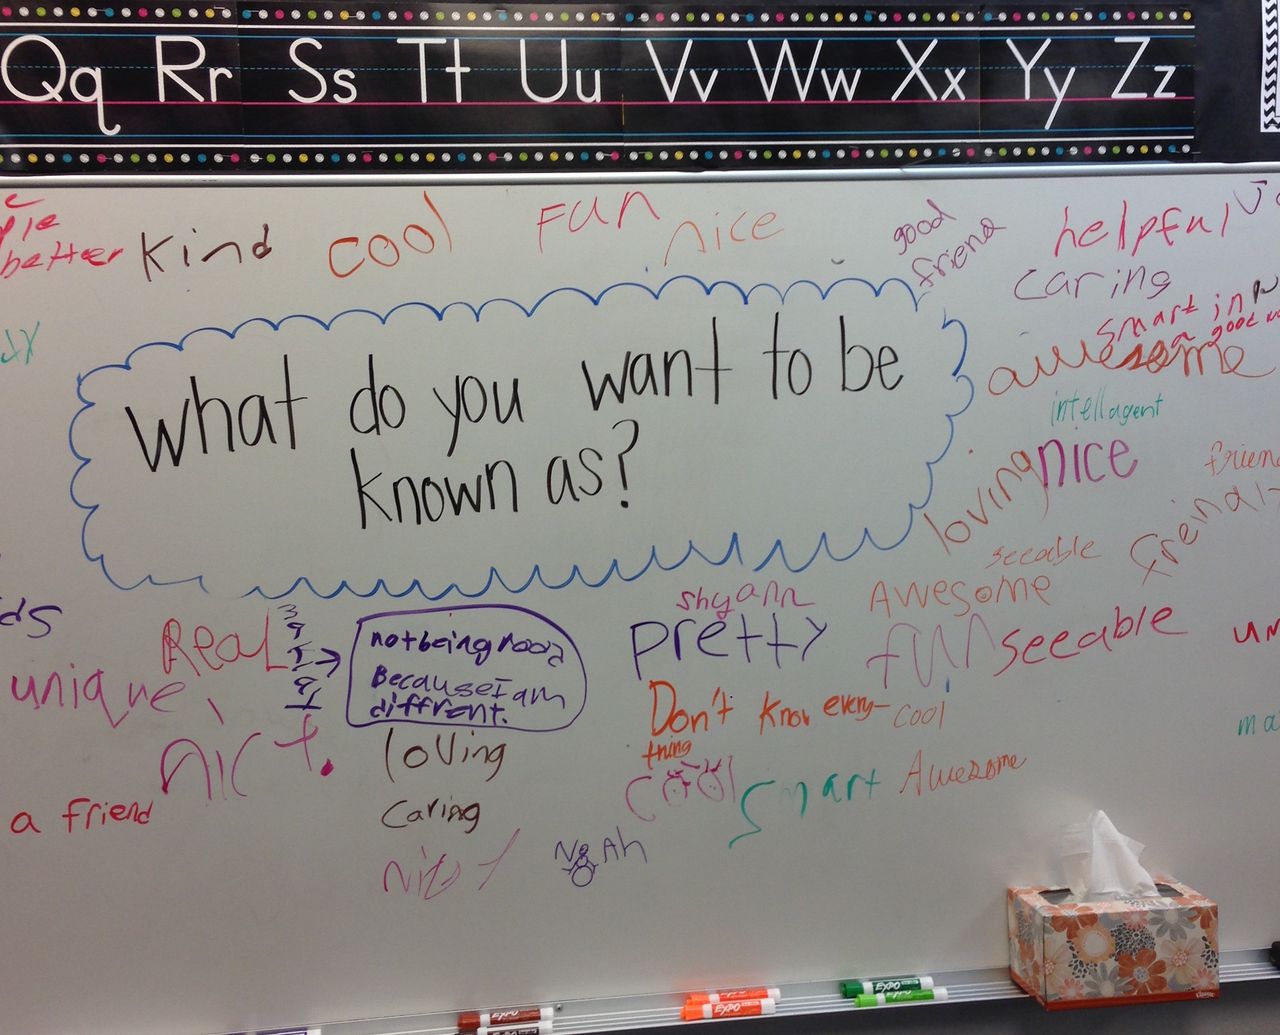 Qq Rr Ss Tt Uu Vv Ww Xx Yy Zz
better
Kind
cool
Fun
nice
good
friend
helpful
caring
smart in
a good
awesome
intellagent
What do you want to be
known as?
loving
nice
freindly
seeable
Awesome
Real
unique,
not being mood
Because I am
diffrent.
shyann
pretty
fun
seeable
Don't know every-
thing
cool
cool
loving
a friend
caring
Smart
Awesome
Noah
EXPO
EXPO
EXPO
EXPO
EXPO
Kleenex